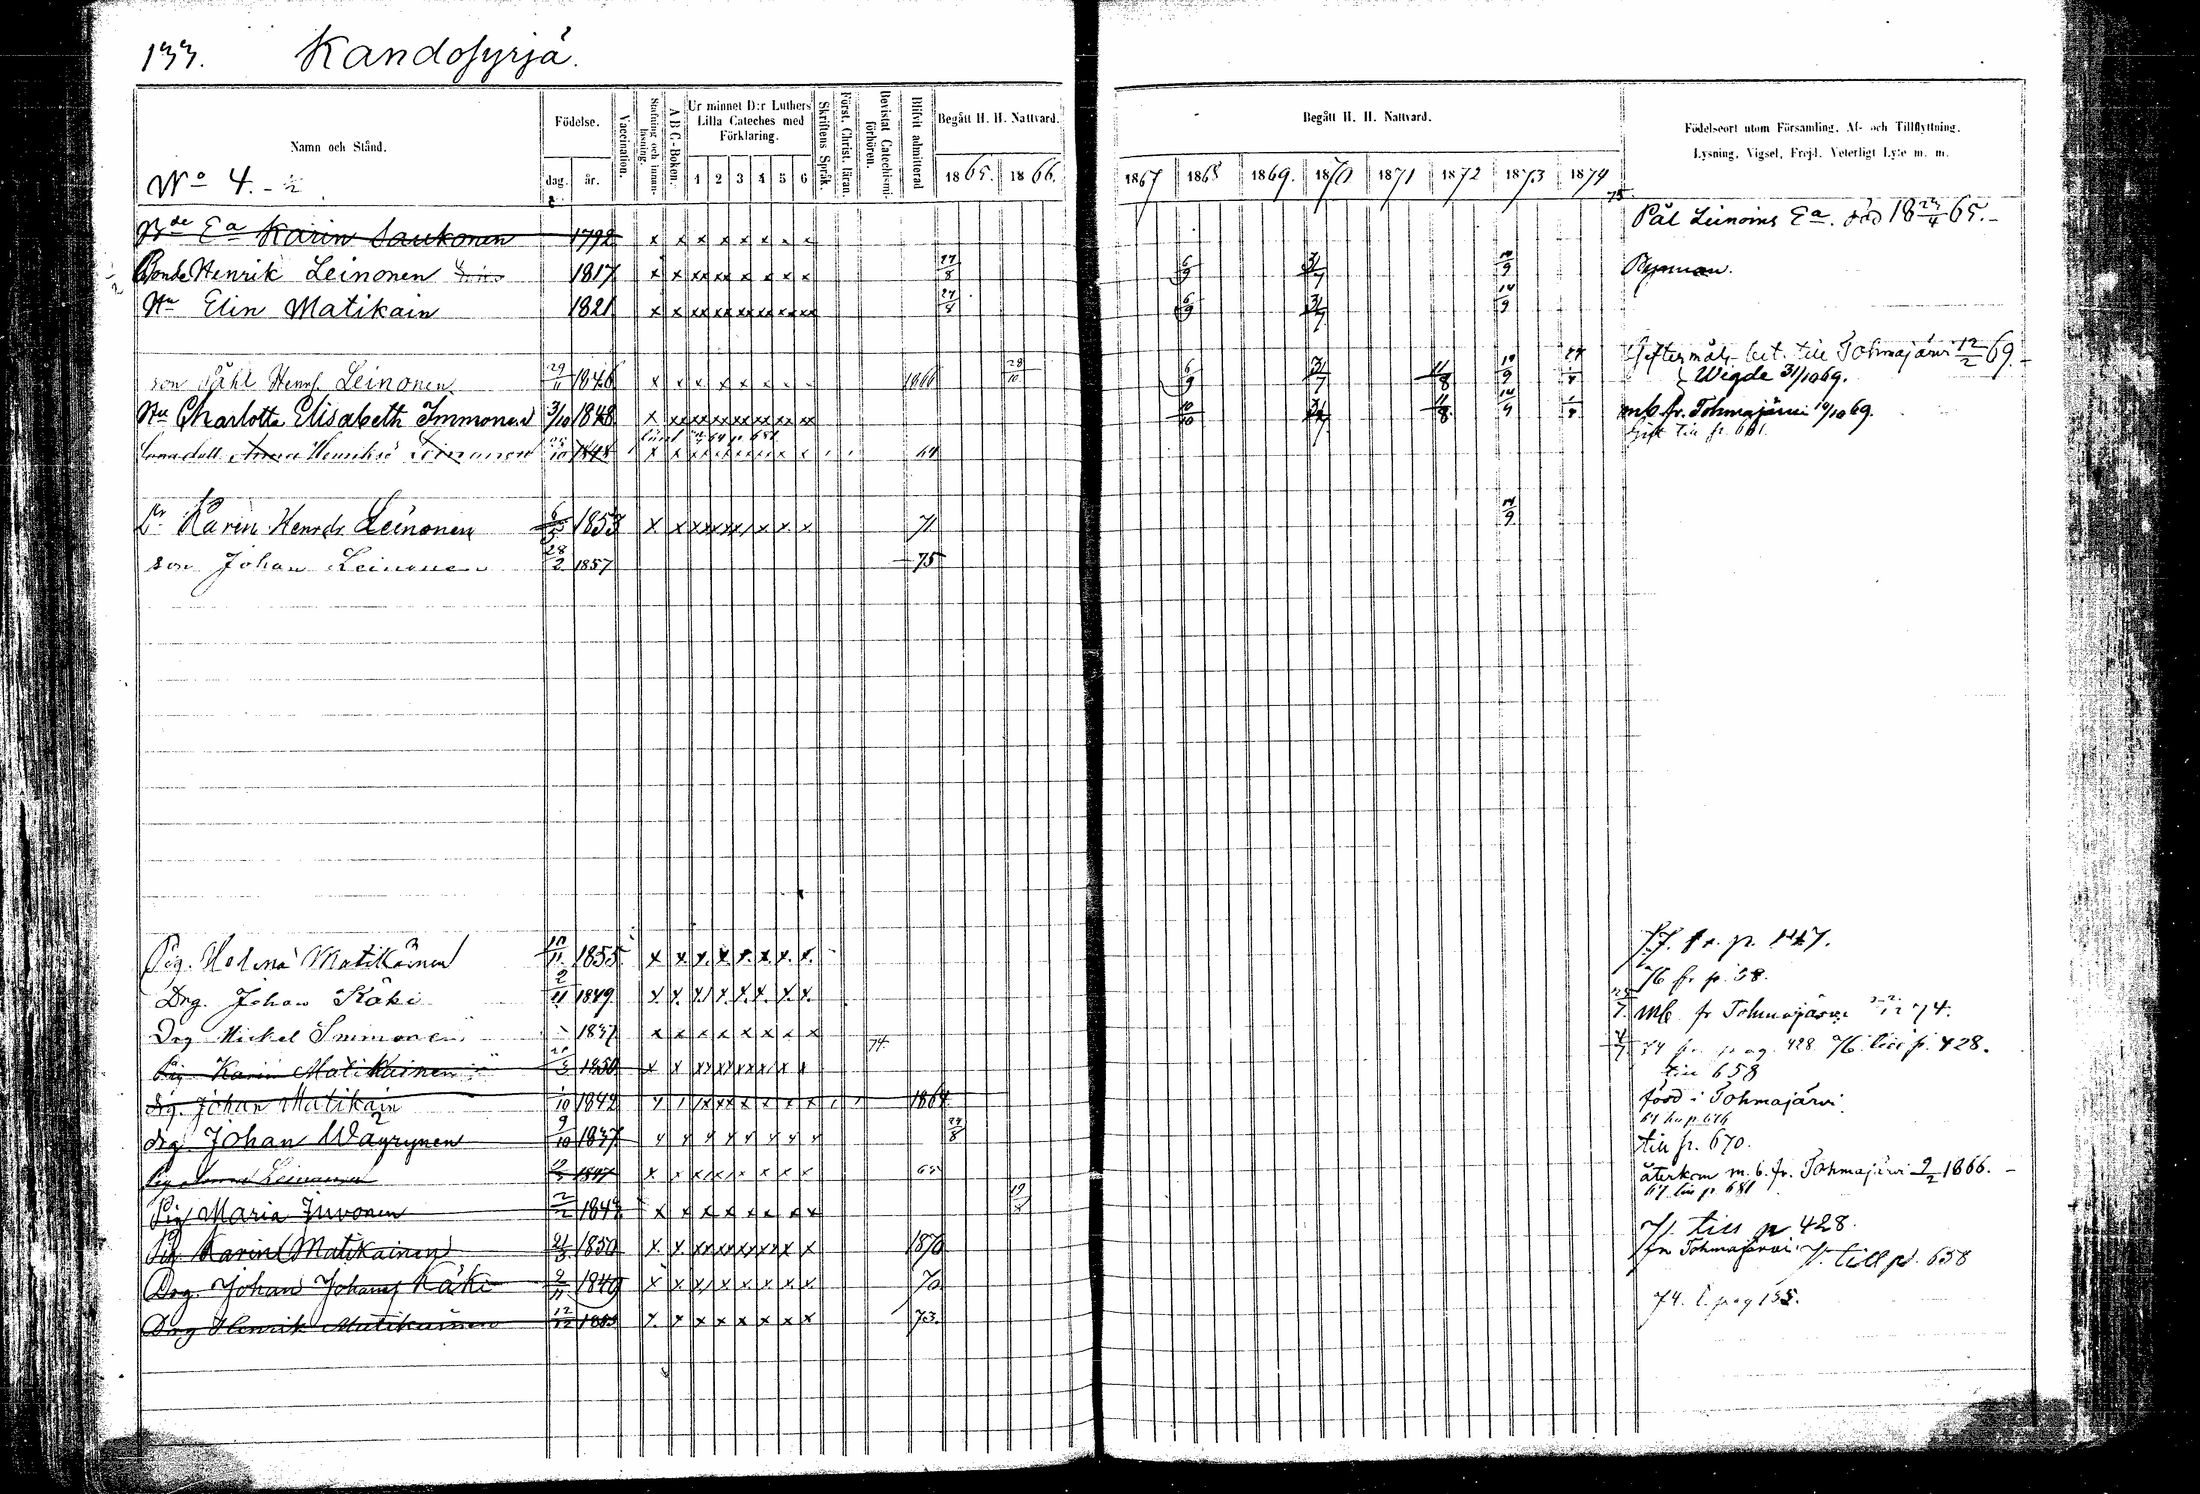 133. Kandosyrjä.
Namn och Stånd.
Födelse.
dag. år.
Vaccination.
Stafning och innanläsning.
A B C-Boken.
Ur minnet D:r Luthers Lilla Cateches med Förklaring.
1 2 3 4 5 6
Skriftens Språk.
Först. Christ. läran.
Bevistat Catechismiförhören.
Blifvit admitterad
Begått H. H. Nattvard.
1865. 1866.
Begått H. H. Nattvard.
1867 1868 1869. 1870 1871 1872 1873 1874 75
Födelseort utom Församling, Af- och Tillflyttning, Lysning, Vigsel, Frejd, Veterligt Lyte m. m.
No 4. - ½
Bde Ea Karin Saukonen 1792 x x x x x x x x x Pål Leinoins Ea. död 18 23/4 65.-
Bonde Henrik Leinonen 1817 x x xx xx x x x x 27/8 6/9 31/7 14/9
Hu Elin Matikain 1821 x x xx xx xx xx xx xx 27/8 6/9 31/7 14/9
son Påhl Henrs Leinonen 29/11 1846 x x x x x x x x 1866 28/10 6/9 31/7 11/8 14/9 Giftermåls bet. till Tohmajärvi 12/2 69.-
Wigde 31/10 69.
Hu Charlotta Elisabeth Immonen 3/10 1848 x xx xx xx xx xx xx xx 10/10 31/7 11/8 14/9 mb fr. Tohmajärvi 14/10 69.
Anna Henriksd Leinonen 25/10 1848 x x 64 Gift till p. 681.
Dr Karin Henrdr Leinonen 1853 x x xx xx x x x x 71 14/9
son Johan Leinonen 28/2 1857 75
Pig. Helena Matikainen 10/11 1855 x x x x x x x x 77. fr. p. 147.
Drg. Johan Käki 2/11 1849 x x x x x x x x 76 fr p. 58.
Drg Mickel Immonen 1837 x x x x x x x x 74. mb fr Tohmajärvi 74.
Pig Karin Matikainen 1850 x x xx xx xx x x 74 fr. pag. 428 76. till p. 428.
till 658
drg. Johan Matikain 1/10 1842 1864 född i Tohmajärvi.
drg. Johan Wäyrynen 9/10 1837 27/8 till p. 670.
Pig Leinonen 1847 x x x x x x x x 65 återkom m. b. fr. Tohmajärvi 9/2 1866.-
67 till p 681
Pig Maria Juvonen 2/2 x x x x x x x x
Pig Karin Matikainen 21/3 1850 x x xx xx xx xx x x 1870 71. till p 428.
fr Tohmajärvi
Drg. Johan Johans Käki 2/11 1849 x x x x x x x x 70 till p. 658
Drg Henrik Matikainen 12/12 x x x x x x x x 73. 74. t. pag 155.